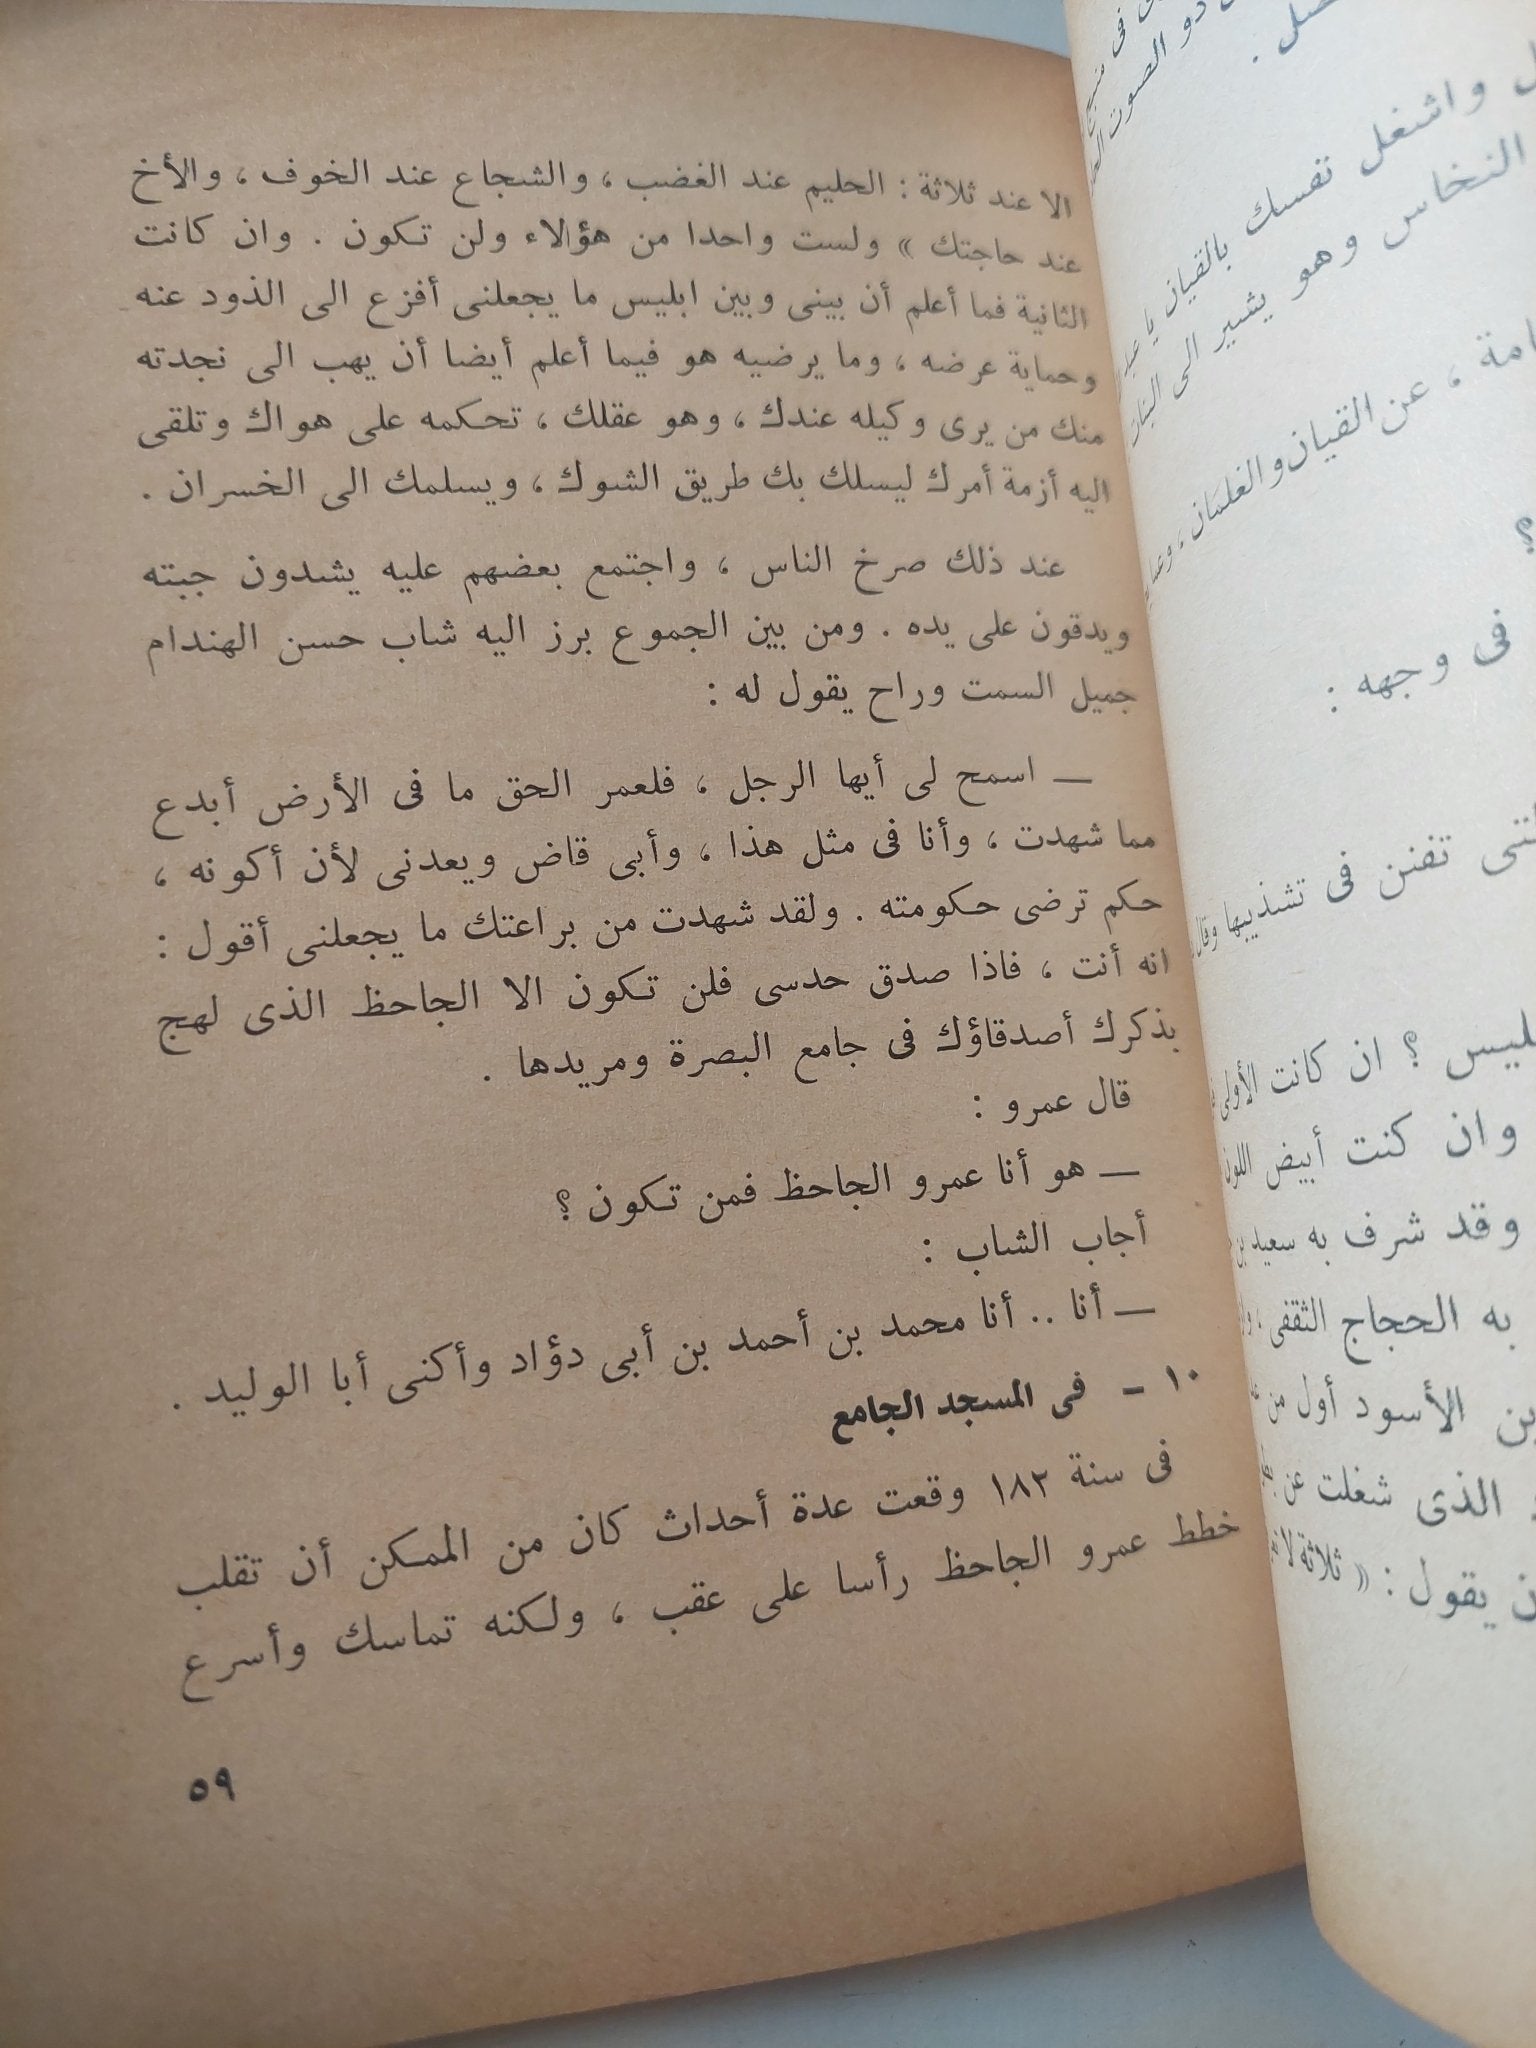 الا عند ثلاثة : الحليم عند الغضب ، والشجاع عند الخوف ، والأخ
عند حاجتك » ولست واحدا من هؤلاء ولن تكون . وان كانت
الثانية فما أعلم أن بينى وبين ابليس ما يجعلنى أفزع الى الذود عنه
وحماية عرضه ، وما يرضيه هو فيما أعلم أيضا أن يهب الى نجدته
منك من يرى وكيله عندك ، وهو عقلك ، تحكمه على هواك وتلقى
اليه أزمة أمرك ليسلك بك طريق الشوك ، ويسلمك الى الخسران .
عند ذلك صرخ الناس ، واجتمع بعضهم عليه يشدون جبته
ويدقون على يده . ومن بين الجموع برز اليه شاب حسن الهندام
جميل السمت وراح يقول له :
— اسمح لى أيها الرجل ، فلعمر الحق ما فى الأرض أبدع
مما شهدت ، وأنا فى مثل هذا ، وأبى قاض ويعدنى لأن أكونه ،
حكم ترضى حكومته . ولقد شهدت من براعتك ما يجعلنى أقول :
انه أنت ، فاذا صدق حدسى فلن تكون الا الجاحظ الذى لهج
بذكرك أصدقاؤك فى جامع البصرة ومريدها .
قال عمرو :
— هو أنا عمرو الجاحظ فمن تكون ؟
أجاب الشاب :
— أنا .. أنا محمد بن أحمد بن أبى دؤاد وأكنى أبا الوليد .
١٠ - فى المسجد الجامع
فى سنة ١٨٢ وقعت عدة أحداث كان من الممكن أن تقلب
خطط عمرو الجاحظ رأسا على عقب ، ولكنه تماسك وأسرع
٥٩
ذو الصوت
واشغل نفسك بالقيان يا
النخاس وهو يشير الى البنات
، عن القيان والغلمان ،
؟
فى وجهه :
تفنن فى تشذيبها وقال
؟ ان كانت الأولى
وان كنت أبيض اللون
وقد شرف به سعيد بن
به الحجاج الثقفى ،
بن الأسود أول من
الذى شغلت عن
يقول : « ثلاثة لا